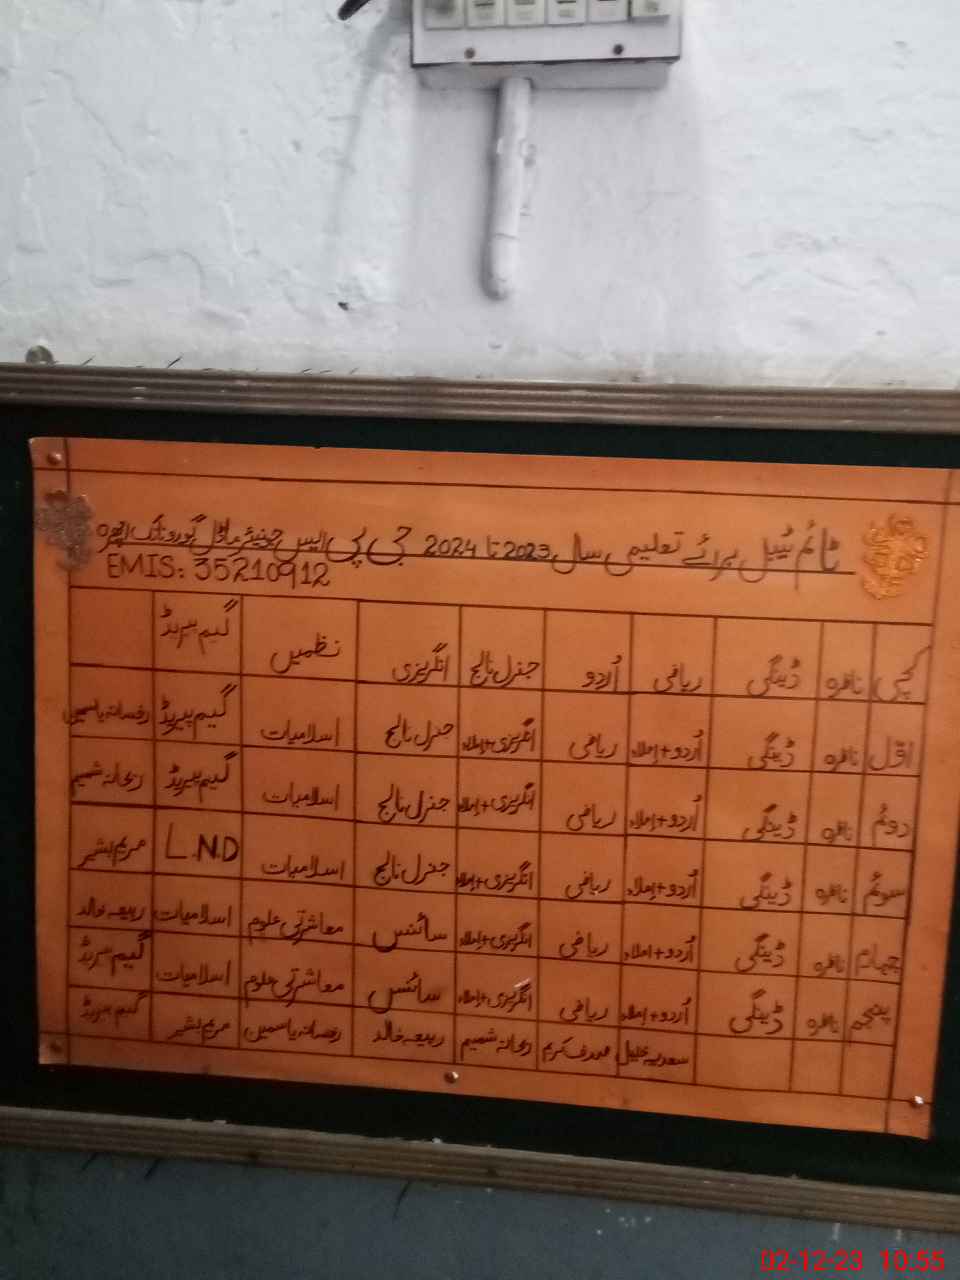 ٹائم ٹیبل برائے تعلیمی سال 2023 تا 2024 جی پی ایس جونیئر ماڈل گورونانک اچھرہ
EMIS: 35210912
کچی ناظرہ ڈینگی ریاضی اُردو جنرل نالج انگریزی نظمیں گیم پیریڈ
اوّل ناظرہ ڈینگی اُردو+املاء ریاضی انگریزی+املاء جنرل نالج اسلامیات گیم پیریڈ رخسانہ یاسمین
دوئم ناظرہ ڈینگی اُردو+املاء ریاضی انگریزی+املاء جنرل نالج اسلامیات گیم پیریڈ ریحانہ شمیم
سوئم ناظرہ ڈینگی اُردو+املاء ریاضی انگریزی+املاء جنرل نالج اسلامیات L.N.D مریم بشیر
چہارم ناظرہ ڈینگی اُردو+املاء ریاضی انگریزی+املاء سائنس معاشرتی علوم اسلامیات ربیعہ خالد
پنجم ناظرہ ڈینگی اُردو+املاء ریاضی انگریزی+املاء سائنس معاشرتی علوم اسلامیات گیم پیریڈ
سعدیہ خلیل صدف کریم ریحانہ شمیم ربیعہ خالد رخسانہ یاسمین مریم بشیر گیم پیریڈ
02-12-23 10:55